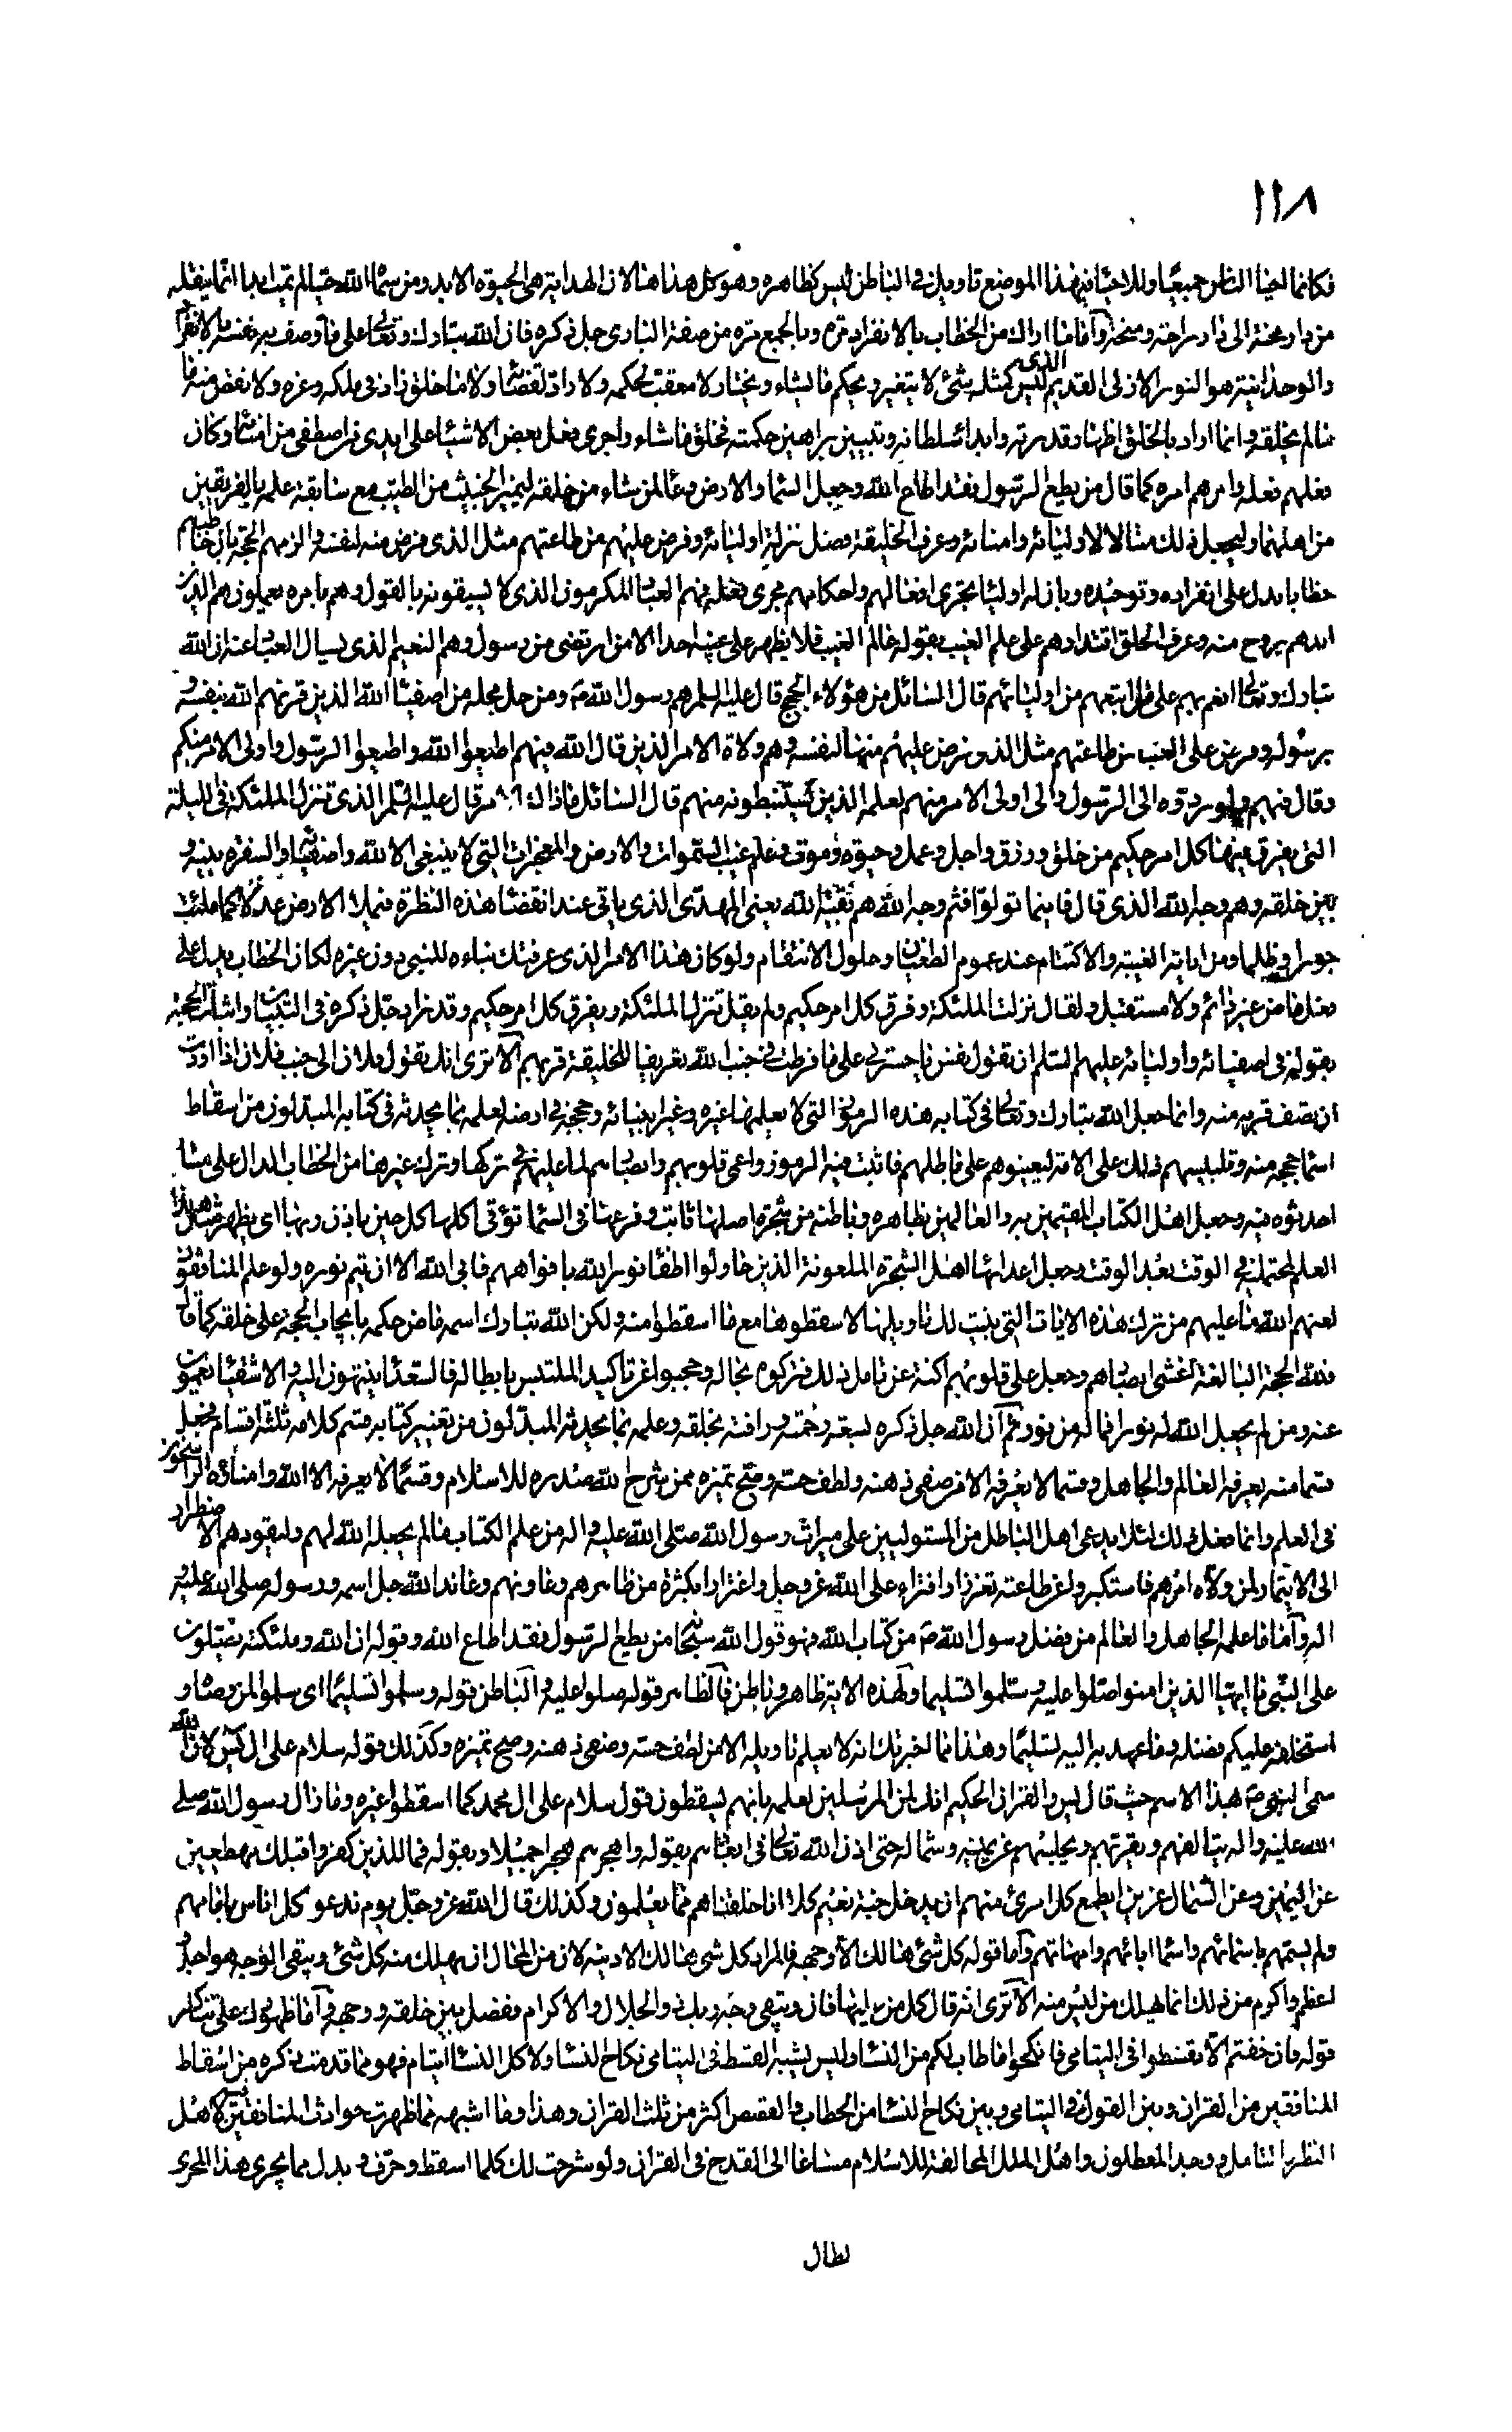 ١١٨
فكانما احيا الناس جميعا وللاحياء في هذا الموضع تاويل في الباطن ليس كظاهره وهو كل هذا هنا لان الهداية هي الحيوة الابد ومن سماه الله حيا لم يمت ابدا انما ينقله
من دار محنة الى دار راحة ومنحة واما ما اراك من الخطاب بالانفراد مرة وبالجمع مرة من صفة الباري جل ذكره فان الله تبارك وتعالى على ما وصف به نفسه بالانفراد
والوحدانية هو النور الازلي القديم الذي ليس كمثله شئ لا يتغير ويحكم ما يشاء ويختار ولا معقب لحكمه ولا راد لقضائه ولا ما خلق زاد في ملكه وعزه ولا نقص منه ما
لم يخلقه وانما اراد بالخلق اظهار قدرته وابداء سلطانه وتبيين براهين حكمته فخلق ما شاء واجرى فعل بعض الاشياء على ايدي من اصطفى من امنائه وكان
فعلهم فعله وامرهم امره كما قال من يطع الرسول فقد اطاع الله وجعل السماء والارض وعاء لمن شاء من خلقه ليميز الخبيث من الطيب مع سابقة علمه بالفريقين
من اهلهما وليجعل ذلك مثالا لاوليائه وامنائه وعرف الخليقة فضل منزلة اوليائه وفرض عليهم من طاعتهم مثل الذي فرضه منه لنفسه والزمهم الحجة بان خاطبهم
خطابا يدل على انفراده وتوحيده وبان له اولياء تجري افعالهم واحكامهم مجرى فعله فهم العباد المكرمون الذي لا يسبقونه بالقول وهم بامره يعملون هم الذين
ايدهم بروح منه وعرف الخلق اقتدارهم على علم الغيب بقوله عالم الغيب فلا يظهر على غيبه احدا الا من ارتضى من رسول وهم النعيم الذي يسال العباد عنه ان الله
تبارك وتعالى انعم بهم على من اتبعهم من اوليائهم قال السائل من هؤلاء الحجج قال عليه السلم هم رسول الله ص ومن حل محله من اصفياء الله الذين قرنهم الله بنفسه و
برسوله وفرض على العباد من طاعتهم مثل الذي فرض عليهم منها لنفسه وهم ولاة الامر الذين قال الله فيهم اطيعوا الله واطيعوا الرسول واولى الامر منكم
وقال فيهم ولو ردوه الى الرسول والى اولى الامر منهم لعلمه الذين يستنبطونه منهم قال السائل ما ذاك الامر قال عليه السلم الذي تنزل الملئكة في الليلة
التي يفرق فيها كل امر حكيم من خلق ورزق واجل وعمل وحيوة وموت وعلم غيب السموات والارض والمعجزات التي لا ينبغي الا لله واصفيائه والسفرة بينه و
بين خلقه وهم وجه الله الذي قال فاينما تولوا فثم وجه الله هم بقية الله يعني المهدي الذي ياتي عند انقضاء هذه النظرة فيملا الارض عدلا كما ملئت
جورا وظلما ومن اياته الغيبة والاكتتام عند عموم الطغيان وحلول الانتقام ولو كان هذا الامر الذي عرفتك نباءه للنبي دون غيره لكان الخطاب يدل على
فعل ماض غير دائم ولا مستقبل ولقال نزلت الملئكة وفرق كل امر حكيم ولم يقل تنزل الملئكة ويفرق كل امر حكيم وقد زاد جل ذكره في التبيان واثبات الحجة
بقوله في اصفيائه واوليائه عليهم السلم ان تقول نفس يا حسرتى على ما فرطت في جنب الله تعريفا للخليقة قربهم الا ترى انك تقول فلان الى جنب فلان اذا اردت
ان تصف قربه منه وانما جعل الله تبارك وتعالى في كتابه هذه الرموز التي لا يعلمها غيره وغير انبيائه وحججه في ارضه لعلمه بما يحدثه في كتابه المبدلون من اسقاط
اسماء حججه منه وتلبيسهم ذلك على الامة ليعينوهم على باطلهم فاثبت فيه الرموز واعمى قلوبهم وابصارهم لما عليهم في تركها وترك غيرها من الخطاب الدال على ما
احدثوه فيه وجعل اهل الكتاب المقيمين به والعالمين بظاهره وباطنه من شجرة اصلها ثابت وفرعها في السماء تؤتى اكلها كل حين باذن ربها اى يظهر مثل هذا
العلم لمحتمليه في الوقت بعد الوقت وجعل اعدائها اهل الشجرة الملعونة الذين حاولوا اطفاء نور الله بافواههم فابى الله الا ان يتم نوره ولو علم المنافقون
لعنهم الله ما عليهم من ترك هذه الايات التي بينت لك تاويلها لاسقطوها مع ما اسقطوا منه ولكن الله تبارك اسمه ماض حكمه بايجاب الحجة على خلقه كما قال
فلله الحجة البالغة اغشى ابصارهم وجعل على قلوبهم اكنة عن تامل ذلك فتركوه بحاله وحجبوا عن تاكيد الملتبس بابطاله فالسعداء ينتهون اليه والاشقياء يعمون
عنه ومن لم يجعل الله له نورا فما له من نور ثم ان الله جل ذكره لسعة رحمته ورافته بخلقه وعلمه بما يحدثه المبدلون من تغيير كتابه قسم كلامه ثلثة اقسام فجعل
قسما منه يعرفه العالم والجاهل وقسما لا يعرفه الا من صفى ذهنه ولطف حسه وصح تميزه ممن شرح الله صدره للاسلام وقسما لا يعرفه الا الله وامناؤه الراسخون
في العلم وانما فعل ذلك لئلا يدعى اهل الباطل من المستوليين على ميراث رسول الله صلى الله عليه واله من علم الكتاب ما لم يجعله الله لهم وليقودهم الاضطرار
الى الايتمار لمن ولاه امرهم فاستكبروا عن طاعته تعززا وافتراء على الله عز وجل واغترارا بكثرة من ظاهرهم وعاونهم وعاند الله جل اسمه ورسوله صلى الله عليه و
اله واما ما علمه الجاهل والعالم من فضل رسول الله ص من كتاب الله فهو قول الله سبحانه من يطع الرسول فقد اطاع الله وقوله ان الله وملئكته يصلون
على النبي يا ايها الذين امنوا صلوا عليه وسلموا تسليما ولهذه الاية ظاهر وباطن فالظاهر قوله صلوا عليه والباطن قوله وسلموا تسليما اى سلموا لمن وصاه و
استخلفه عليكم فضله وما عهد به اليه تسليما وهذا مما اخبرتك انه لا يعلم تاويله الا من لطف حسه وصفى ذهنه وصح تميزه وكذلك قوله سلام على ال يس لان الله
سمى النبي ص هذا الاسم حيث قال يس والقران الحكيم انك لمن المرسلين لعلمه بانهم يسقطون قول سلام على ال محمد كما اسقطوا غيره وما زال رسول الله صلى
الله عليه واله يتالفهم ويقربهم ويجلسهم عن يمينه وشماله حتى اذن الله تعالى في ابعادهم بقوله واهجرهم هجرا جميلا وبقوله فما للذين كفروا قبلك مهطعين
عن اليمين وعن الشمال عزين ايطمع كل امرئ منهم ان يدخل جنة نعيم كلا انا خلقناهم مما يعلمون وكذلك قال الله عز وجل يوم ندعو كل اناس بامامهم
ولم يسمهم باسمائهم واسماء ابائهم وامهاتهم واما قوله كل شئ هالك الا وجهه فالمراد كل شئ هالك الا دينه لان من المحال ان يهلك منه كل شئ ويبقى الوجه هو اجل و
اعظم واكرم من ذلك انما يهلك من ليس منه الا ترى انه قال كل من عليها فان ويبقى وجه ربك ذو الجلال والاكرام ففصل بين خلقه ووجهه واما ظهورك على تناكر
قوله فان خفتم الا تقسطوا في اليتامى فانكحوا ما طاب لكم من النساء وليس يشبه القسط في اليتامى نكاح النساء ولا كل النساء ايتام فهو مما قدمت ذكره من اسقاط
المنافقين من القران وبين القول في اليتامى وبين نكاح النساء من الخطاب والقصص اكثر من ثلث القران وهذا وما اشبهه مما ظهرت حوادث المنافقين فيه لاهل
النظر والتامل ووجد المعطلون واهل الملل المخالفة للاسلام مساغا الى القدح في القران ولو شرحت لك كلما اسقط وحرف وبدل مما يجري هذا المجرى
لطال